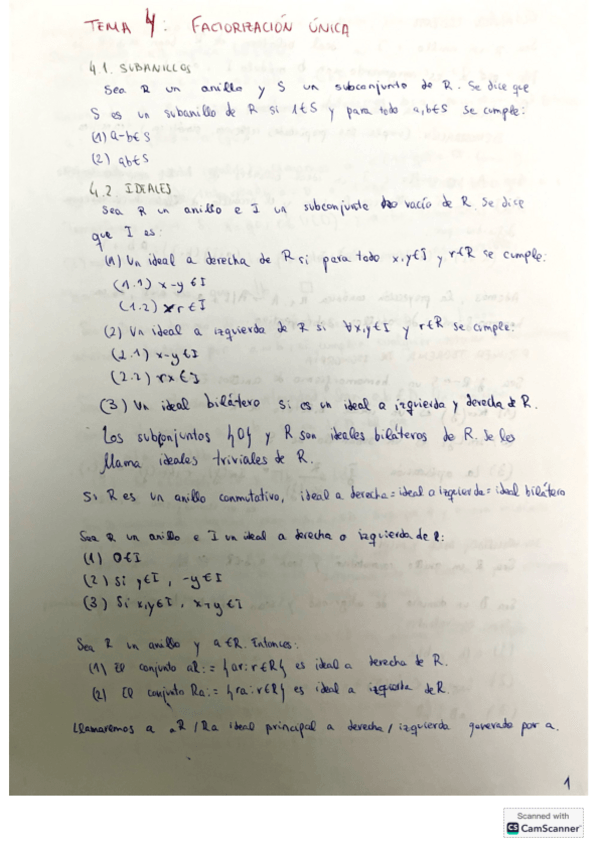 TEMA 4: FACTORIZACIÓN ÚNICA
4.1. SUBANILLOS
Sea R un anillo y S un subconjunto de R. Se dice que
S es un subanillo de R si 1∈S y para todo a,b∈S se cumple:
(1) a-b∈S
(2) ab∈S
4.2. IDEALES
Sea R un anillo e I un subconjunto no vacío de R. Se dice
que I es:
(1) Un ideal a derecha de R si para todo x,y∈I y r∈R se cumple:
(1.1) x-y∈I
(1.2) xr∈I
(2) Un ideal a izquierda de R si ∀x,y∈I y r∈R se cumple:
(2.1) x-y∈I
(2.2) rx∈I
(3) Un ideal bilátero si es un ideal a izquierda y derecha de R.
Los subconjuntos {0} y R son ideales biláteros de R. Se les
llama ideales triviales de R.
Si R es un anillo conmutativo, ideal a derecha = ideal a izquierda = ideal bilátero
Sea R un anillo e I un ideal a derecha o izquierda de R:
(1) 0∈I
(2) Si y∈I, -y∈I
(3) Si x,y∈I, x+y∈I
Sea R un anillo y a∈R. Entonces:
(1) El conjunto aR:= {ar: r∈R} es ideal a derecha de R.
(2) El conjunto Ra:= {ra: r∈R} es ideal a izquierda de R.
Llamaremos a aR / Ra ideal principal a derecha / izquierda generado por a.
1
Scanned with
CS CamScanner